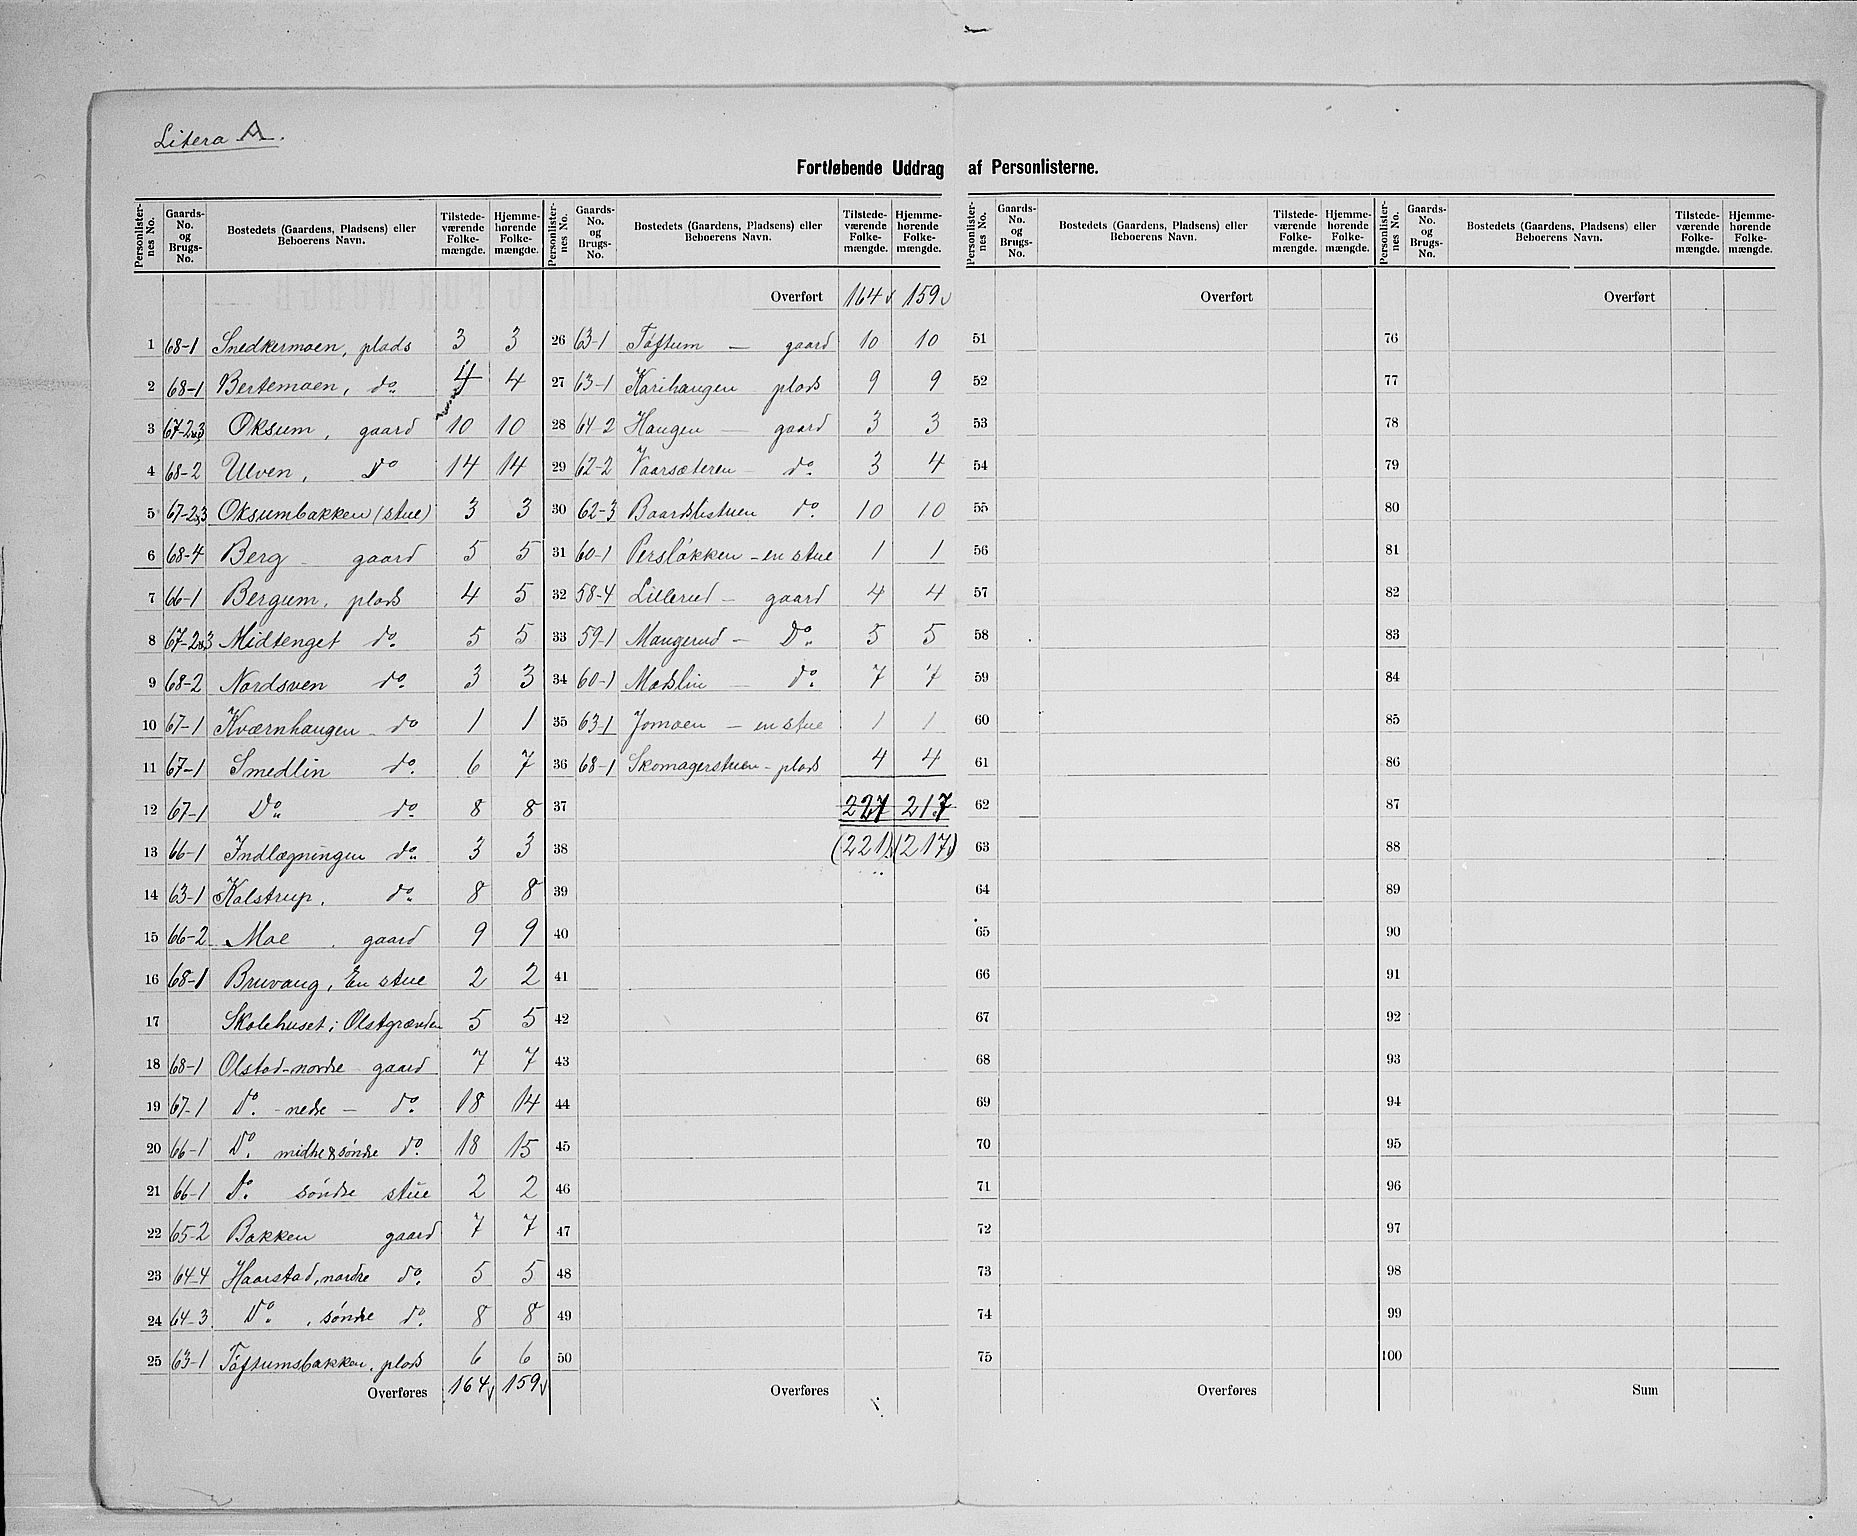 Litera A.
Fortløbende Uddrag af Personlisterne.
Personlisternes No. | Gaards-No. og Brugs-No. | Bostedets (Gaardens, Pladsens) eller Beboerens Navn. | Tilstedeværende Folkemængde. | Hjemmehørende Folkemængde.
1 68-1 Snedkermoen, plads 3 3
2 68-1 Bertemoen, do 4 4
3 67-2&3 Oksum, gaard 10 10
4 68-2 Ulven, Do 14 14
5 67-2&3 Oksumbakken (stue) 3 3
6 68-4 Berg - gaard 5 5
7 66-1 Bergum, plads 4 5
8 67-2&3 Midtenget do. 5 5
9 68-2 Nordsven do. 3 3
10 67-1 Kværnhaugen - do 1 1
11 67-1 Smedlin do. 6 7
12 67-1 Do do. 8 8
13 66-1 Indlægningen do. 3 3
14 63-1 Kolstrup, do. 8 8
15 66-2 Moe . gaard 9 9
16 68-1 Bruvang, En stue 2 2
17 Skolehuset i Olstgrænden 5 5
18 68-1 Olstad-nordre gaard 7 7
19 67-1 Do. - nedre - do. 18 14
20 66-1 Do. midtre & søndre do. 18 15
21 66-1 Do. søndre stue 2 2
22 65-2 Bakken gaard 7 7
23 64-4 Haarstad, nordre do. 5 5
24 64-3 Do. , søndre do. 8 8
25 63-1 Tøftumsbakken, plads 6 6
Overføres 164 159
Personlisternes No. | Gaards-No. og Brugs-No. | Bostedets (Gaardens, Pladsens) eller Beboerens Navn. | Tilstedeværende Folkemængde. | Hjemmehørende Folkemængde.
Overført 164 159
26 63-1 Tøftum - gaard 10 10
27 63-1 Karihaugen plads 9 9
28 64-2 Haugen - gaard 3 3
29 62-2 Vaarsæteren - do. 3 4
30 62-3 Baardslistuen do. 10 10
31 60-1 Persløkken - en stue 1 1
32 58-4 Lillerud - gaard 4 4
33 59-1 Maugerud - Do. 5 5
34 60-1 Modslin - do. 7 7
35 63-1 Jomoen - en stue 1 1
36 68-1 Skomagerstuen - plads 4 4
37 227 217
38 (221) (217)
39
40
41
42
43
44
45
46
47
48
49
50
Overføres
Personlisternes No. | Gaards-No. og Brugs-No. | Bostedets (Gaardens, Pladsens) eller Beboerens Navn. | Tilstedeværende Folkemængde. | Hjemmehørende Folkemængde.
Overført
51
52
53
54
55
56
57
58
59
60
61
62
63
64
65
66
67
68
69
70
71
72
73
74
75
Overføres
Personlisternes No. | Gaards-No. og Brugs-No. | Bostedets (Gaardens, Pladsens) eller Beboerens Navn. | Tilstedeværende Folkemængde. | Hjemmehørende Folkemængde.
Overført
76
77
78
79
80
81
82
83
84
85
86
87
88
89
90
91
92
93
94
95
96
97
98
99
100
Sum